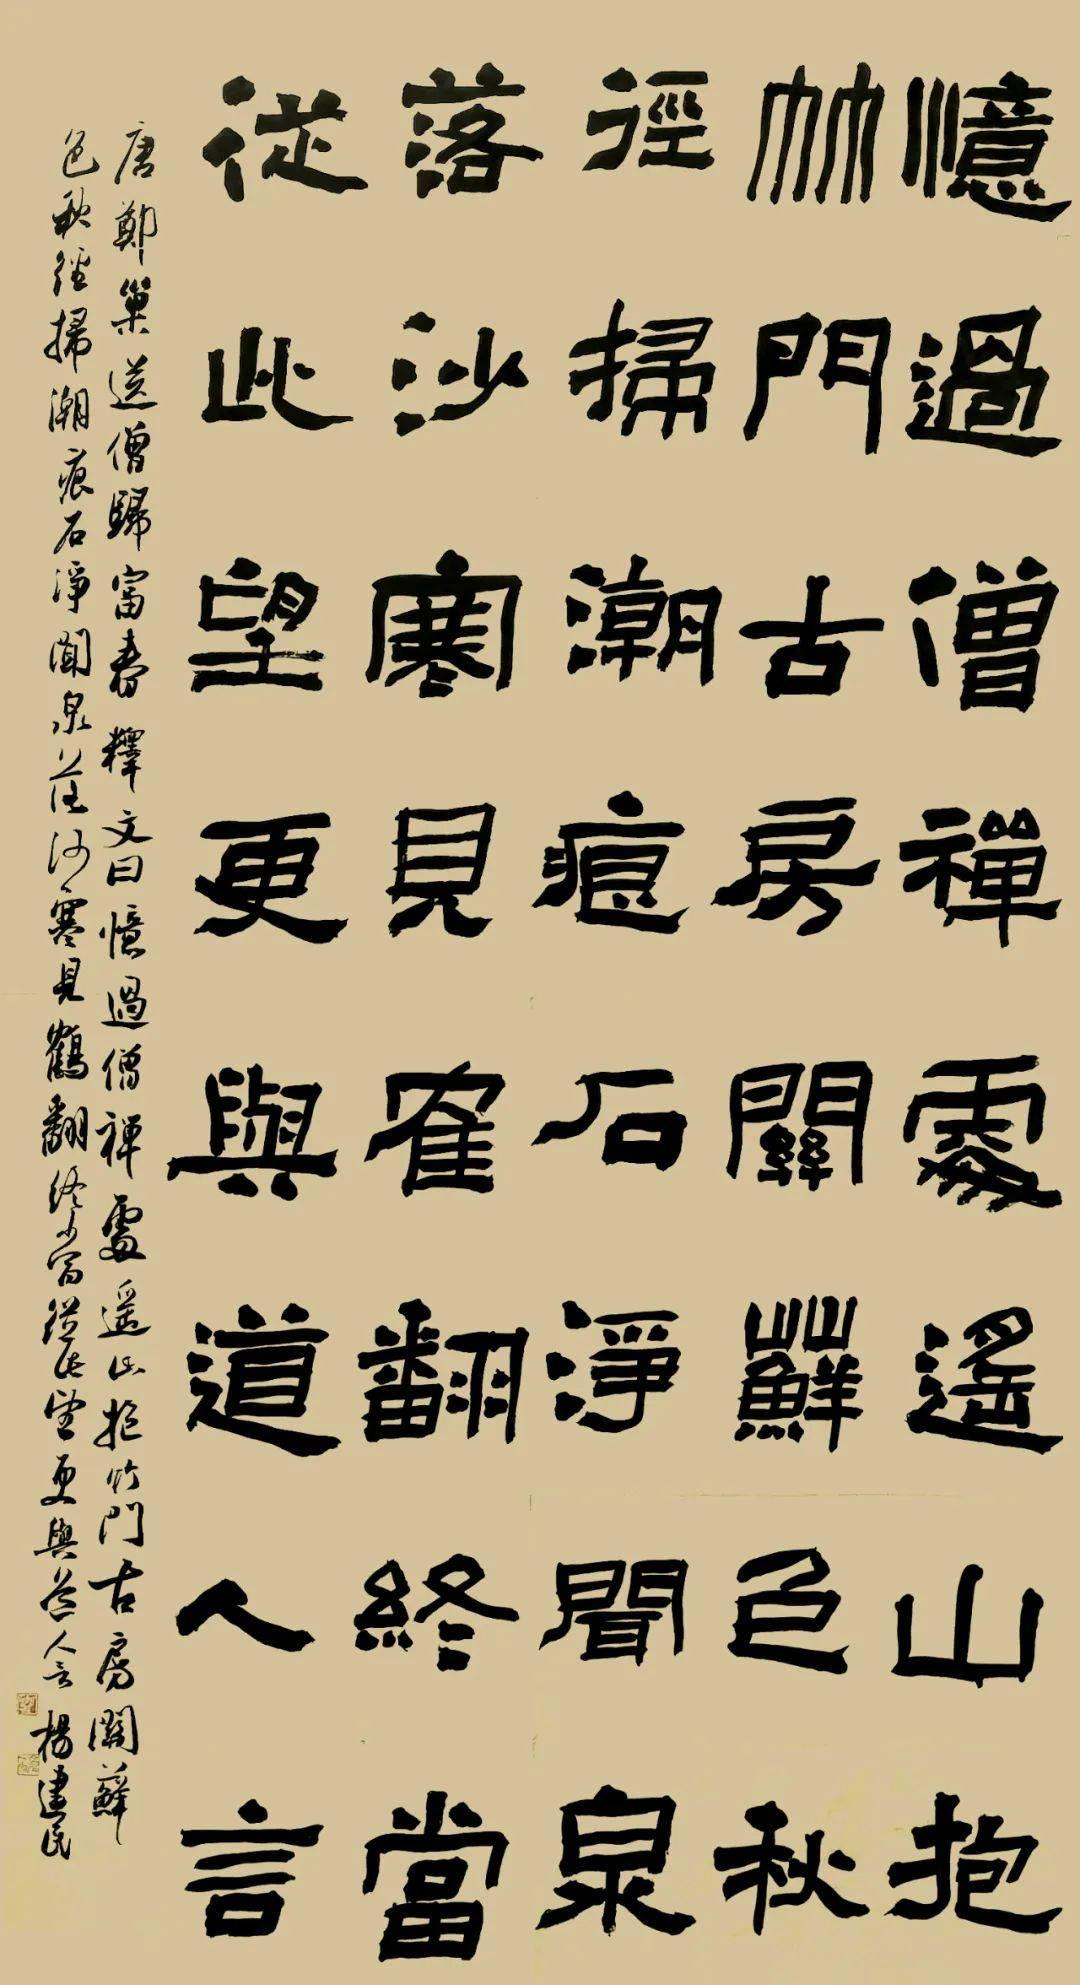 憶過僧禪處遙山抱
竹門古房關蘚色秋
徑掃潮痕石淨聞泉
落沙寒見隺翻終當
從此望更與道人言
唐鄭巢送僧歸富春釋文曰憶過僧禪處遥山抱竹門古房關蘚
色秋徑掃潮痕石淨聞泉落沙寒見鶴翻終當從此望更與道人言楊建民